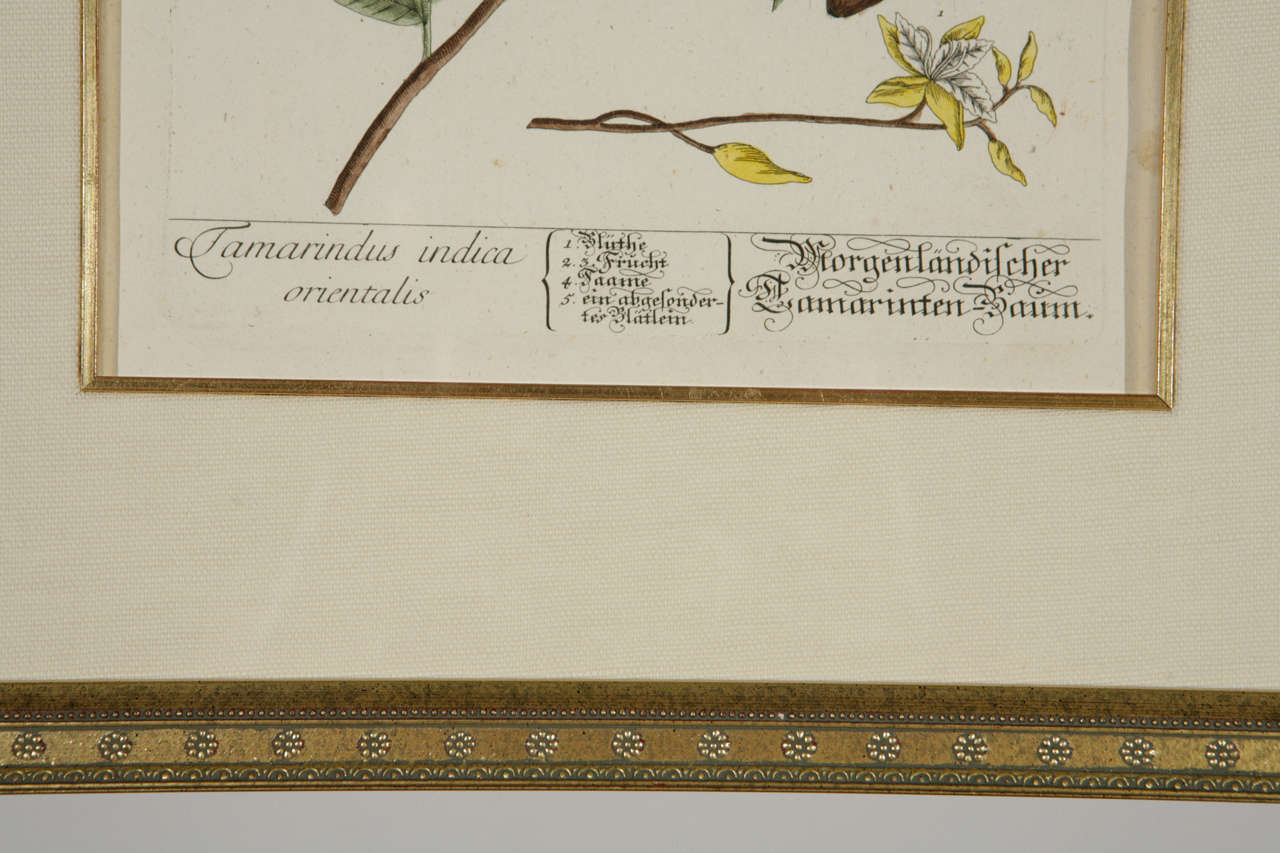 1
Tamarindus indica
orientalis
1. Blüthe
2. 3. Frucht
4. Saame
5. ein abgesonder-
tes Blätlein.
Morgenländischer
Tamarinten-Baum.